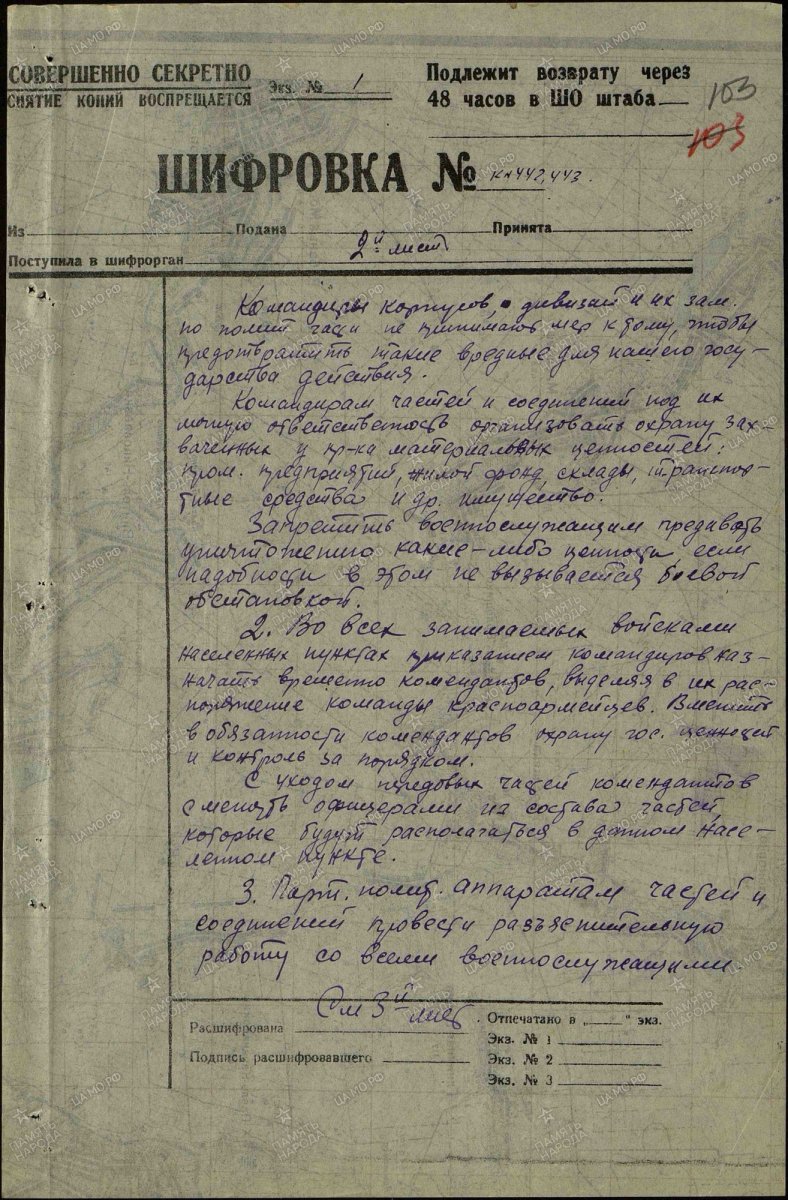 СОВЕРШЕННО СЕКРЕТНО
СНЯТИЕ КОПИЙ ВОСПРЕЩАЕТСЯ
Экз. № 1
Подлежит возврату через
48 часов в ШО штаба
103
103
ШИФРОВКА № кн442,443.
Из Подана Принята
2й лист
Поступила в шифрорган
Командиры корпусов, дивизий и их зам.
по полит части не принимают мер к тому, чтобы
предотвратить такие вредные для нашего госу-
дарства действия.
Командирам частей и соединений под их
личную ответственность организовать охрану зах-
ваченных у пр-ка материальных ценностей:
пром. предприятий, жилой фонд, склады, транспор-
тные средства и др. имущество.
Запретить военнослужащим предавать
уничтожению какие-либо ценности, если
надобности в этом не вызывается боевой
обстановкой.
2. Во всех занимаемых войсками
населенных пунктах приказанием командиров наз-
начать временно комендантов, выделяя в их рас-
поряжение команды красноармейцев. Вменить
в обязанности комендантов охрану гос. ценностей
и контроль за порядком.
С уходом передовых частей комендантов
сменять офицерами из состава частей,
которые будут располагаться в данном насе-
ленном пункте.
3. Парт. полит. аппаратам частей и
соединений провести разъяснительную
работу со всеми военнослужащими
См 3й лист.
Расшифрована
Подпись расшифровавшего
Отпечатано в „ “ экз.
Экз. № 1
Экз. № 2
Экз. № 3
ПАМЯТЬ НАРОДА
ЦАМО.РФ